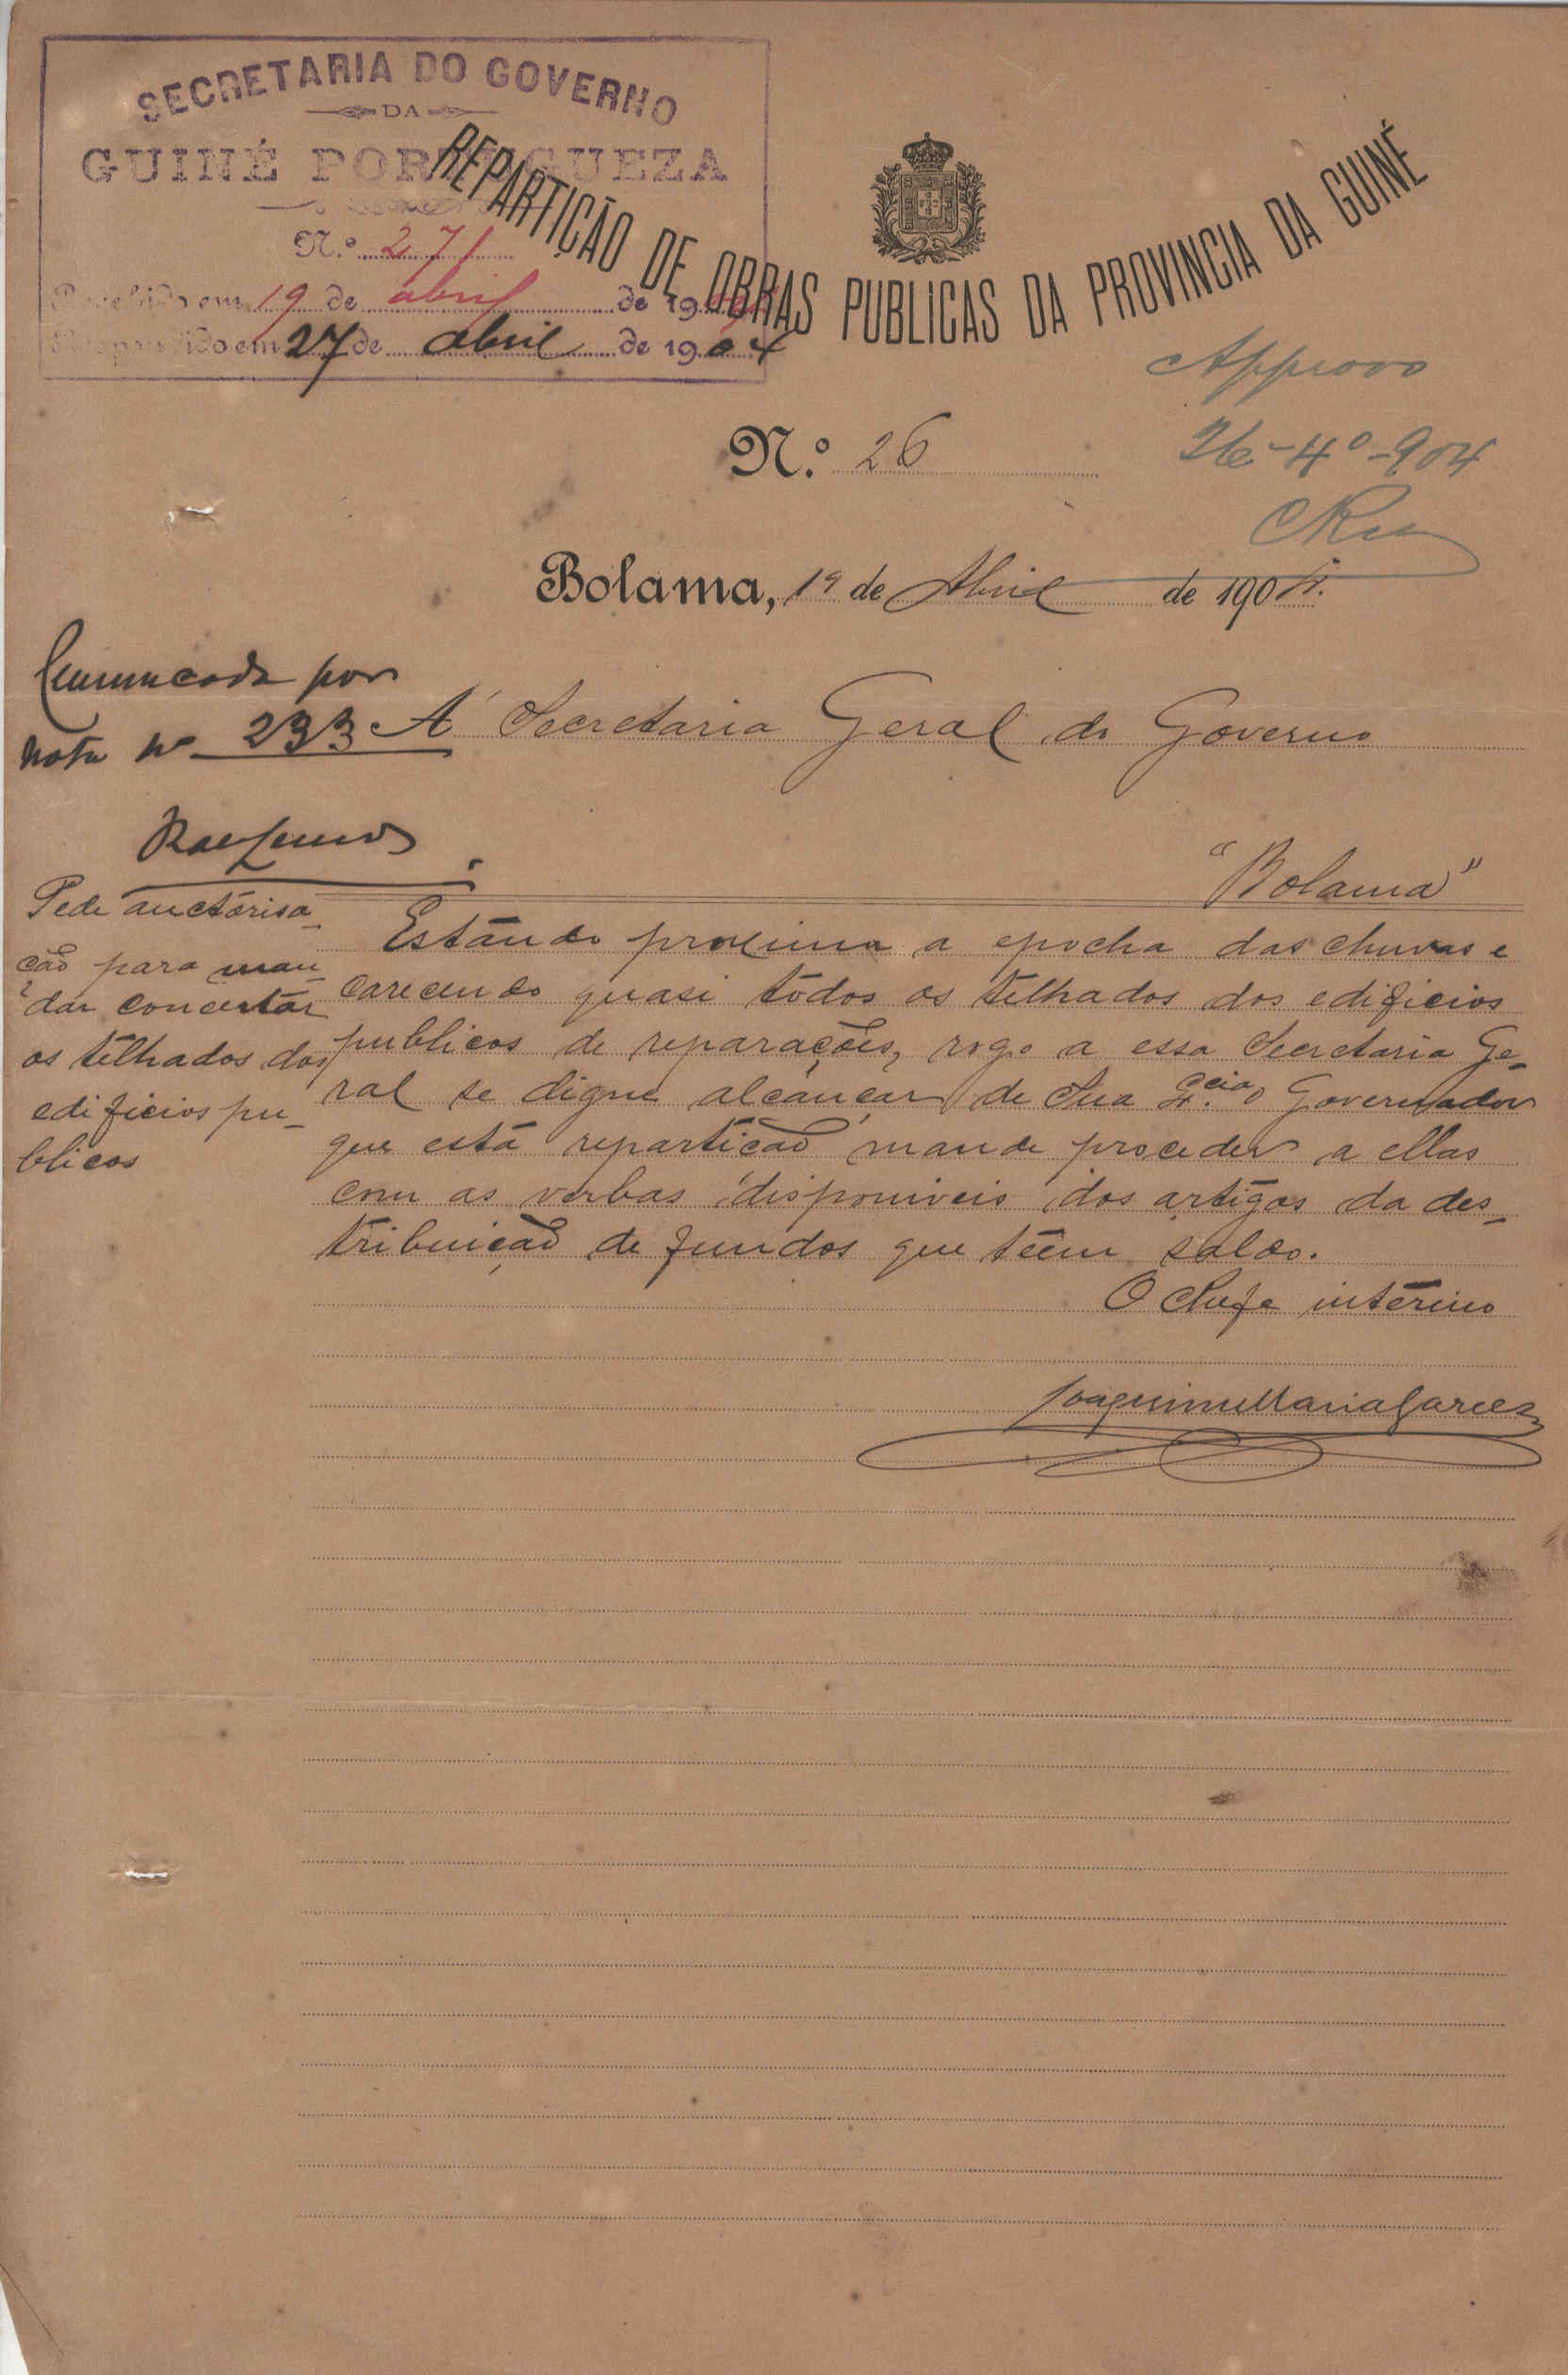 SECRETARIA DO GOVERNO
DA
GUINÉ PORTUGUEZA
N.º 271
Recebido em 19 de abril de 1904
Respondido em 27 de abril de 1904
REPARTIÇÃO DE OBRAS PUBLICAS DA PROVINCIA DA GUINÉ
Approvo
26-4º-904
N.º 26
Bolama, 19 de Abril de 1904.
por
nota nº 233
Á Secretaria Geral do Governo
"Bolama"
Pede auctorisa-
ção para man-
dar concertar
os telhados dos
edificios pu-
blicos
Estando proxima a epocha das chuvas e
carecendo quasi todos os telhados dos edificios
publicos de reparações, rogo a essa Secretaria Ge-
ral se digne alcançar de Sua Ex.cia o Governador
que esta repartição mande proceder a ellas
com as verbas disponiveis dos artigos da des-
tribuição de fundos que téem saldo.
O Chefe interino
Joaquim Maria Garcez